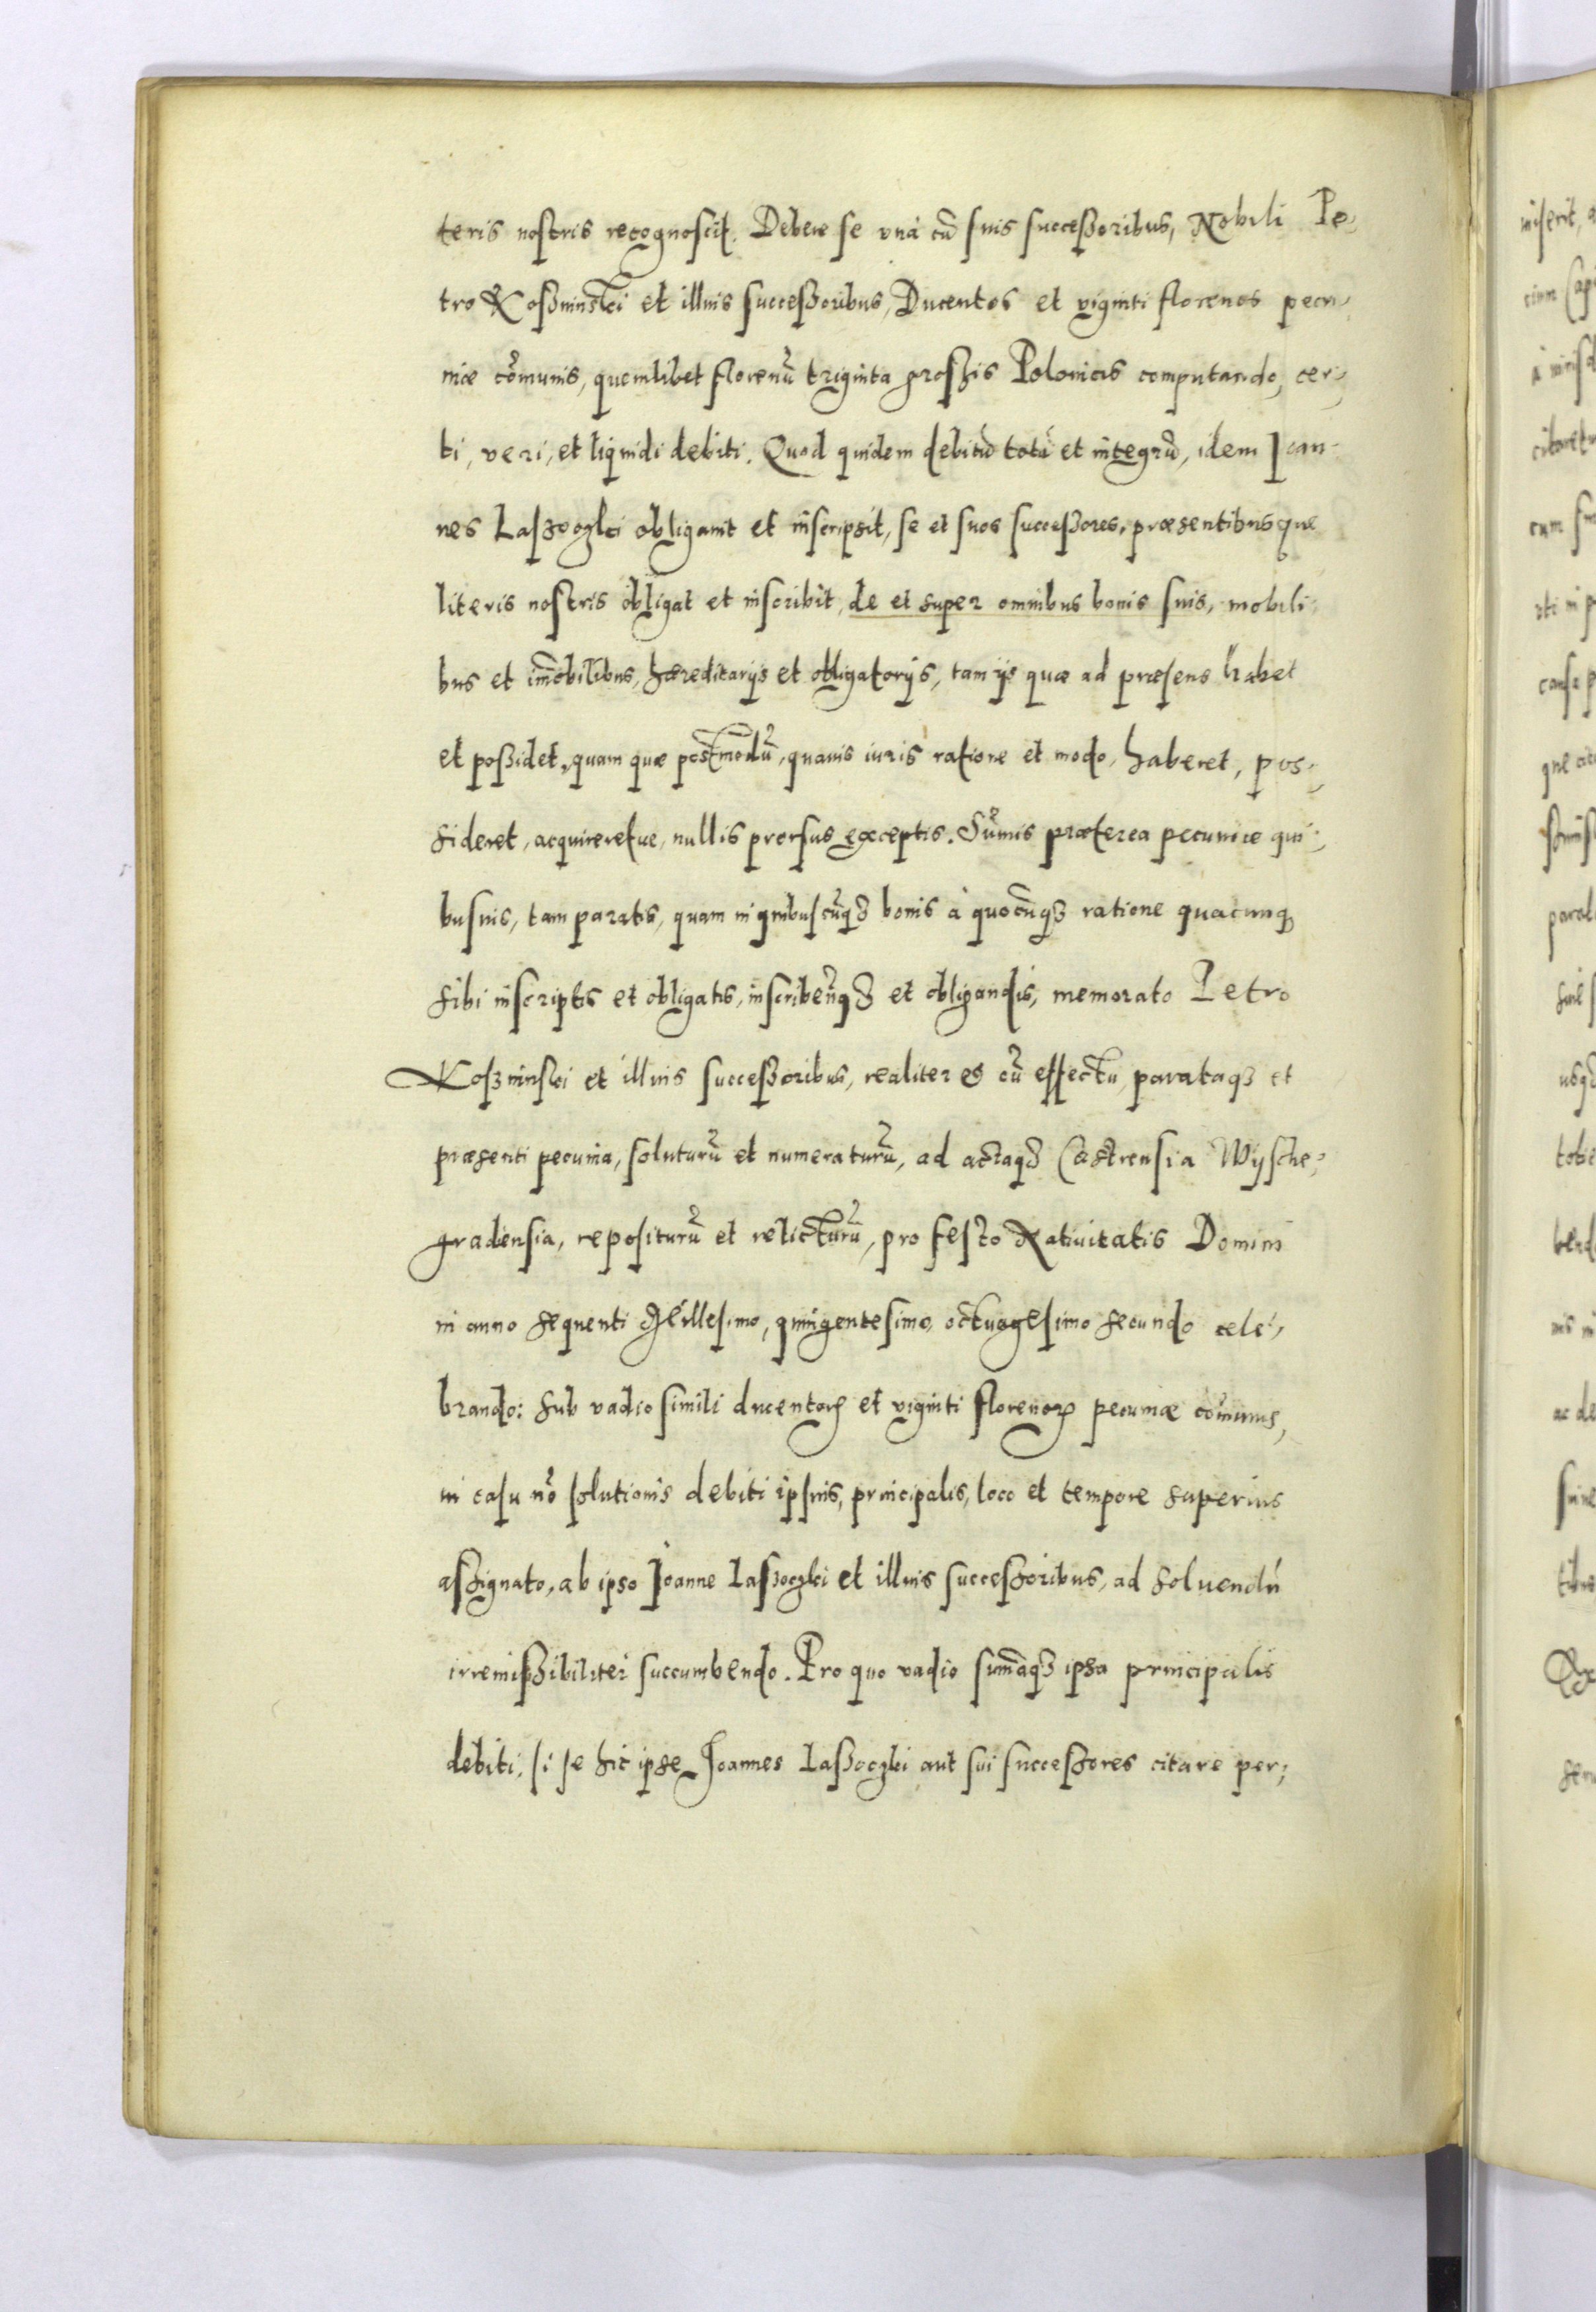 teris nostris recognoscit. Debere se unà cũ suis successoribus, Nobili Pe,
tro Koßminskei et illius successoribus, Ducentos et viginti florenos pecu,
niæ cõmunis, quemlibet florenũ triginta grossis Polonicis computando, cer,
ti, veri, et liquidi debiti. Quod quidem debitũ totũ et integrũ, idem Ioan-
nes Laßoczkei obligauit et inscripsit, se et suos successores, præsentibusque
literis nostris obligat et inscribit, de et super omnibus bonis suis, mobili,
bus et im̃obilibus, hæreditarijs et obligatorijs, tam ijs quæ ad præsens habet
et possidet, quam quæ postmodũ, quauis iuris ratione et modo, haberet, pos,
sideret, acquireretue, nullis prorsus exceptis. Sũmis præterea pecuniæ qui,
busuis, tam paratis, quam in quibuscũq3 bonis à quocũq3 ratione quacunq3
sibi inscriptis et obligatis, inscribeñq3 et obligandis, memorato Petro
Koßminskei et illius successoribus, realiter et cũ effectu, parataq3 et
præsenti pecunia, soluturũ et numeraturũ, ad actaq3 Castrensia Wysche,
gradensia, repositurũ et relicturũ, pro festo Natiuitatis Domini
in anno sequenti Millesimo, quingentesimo, octuagesimo secundo cele,
brando: sub vadio simili ducentorꝝ et viginti florenorꝝ pecuniæ cõmunis,
in casu nõ solutionis debiti ipsius, principalis, loco et tempore superius
assignato, ab ipso Joanne Laßoczkei et illius successoribus, ad soluendũ
irremissibiliter succumbendo. Pro quo vadio sum̃aq3 ipsa principalis
debiti, si se hic ipse Joannes Laßoczkei aut sui successores citare per,